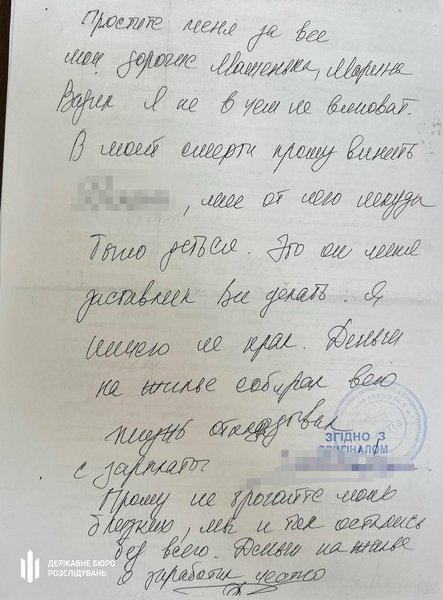 Простите меня за все
мои дорогие Машенька, Марина
Вадик. Я не в чем не виноват.
В моей смерти прошу винить
, мне от него некуда
было деться. Это он меня
заставлял все делать. Я
ничего не крал. Деньги
на жилье собирал всю
жизнь откладывал
с зарплаты
Прошу не трогайте мою
, мы и так остались
без всего. Деньги на жилье
я заработал честно
ЗГІДНО З
ОРИГІНАЛОМ
ДЕРЖАВНЕ БЮРО
РОЗСЛІДУВАНЬ